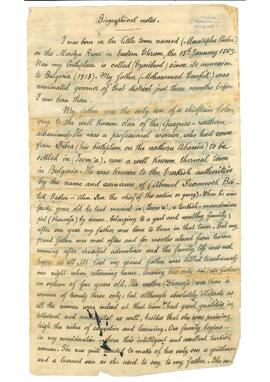 Biographical notes.
I was born in the little town named (Moustapha Pasha)
on the Maritza River in Eastern Thrace, the 15th January 1869.
Now my birthplace is called (Svarilend) since its annexation
to Bulgaria (1913). My father, (Mohammed Tewfik) was
nominated governor of that district just three months before
I was born there.
My father was the only son of a chieftain belon-
ging to the well known clan of the Gueques - northern
albanians. He was a professional warrior, who had come
from (his birthplace on the northern Albania) to be
settled in (Joom'a), now a well known thermal town
in Bulgaria. He was known to the Turkish authorities
by the name and surname of (Ahmed
or the chief of the section or gang). When he was
forty years old he got married in (Joom'a), a turkish-
girl by name, belonging to a good and wealthy family;
after one year my father was born to them in that town. But my
grand father was most often and for months absent from home;
running after dreadful adventures and the family life was not
happy at all. At last my grand father was killed treacherously
one night when returning home, leaving his only son, my father
an orphan of few years old. His mother was then a
woman of twenty only; but although absolutely illiterate as
all the women were indeed at that time, had great qualities in
as well; besides that she was praising
high the value of education and learning. Our family begins -
in my consideration - from this intelligent and excellent turkish
woman. She was quite to make of her only son a gentleman
and a learned one as she used to say to my father. She